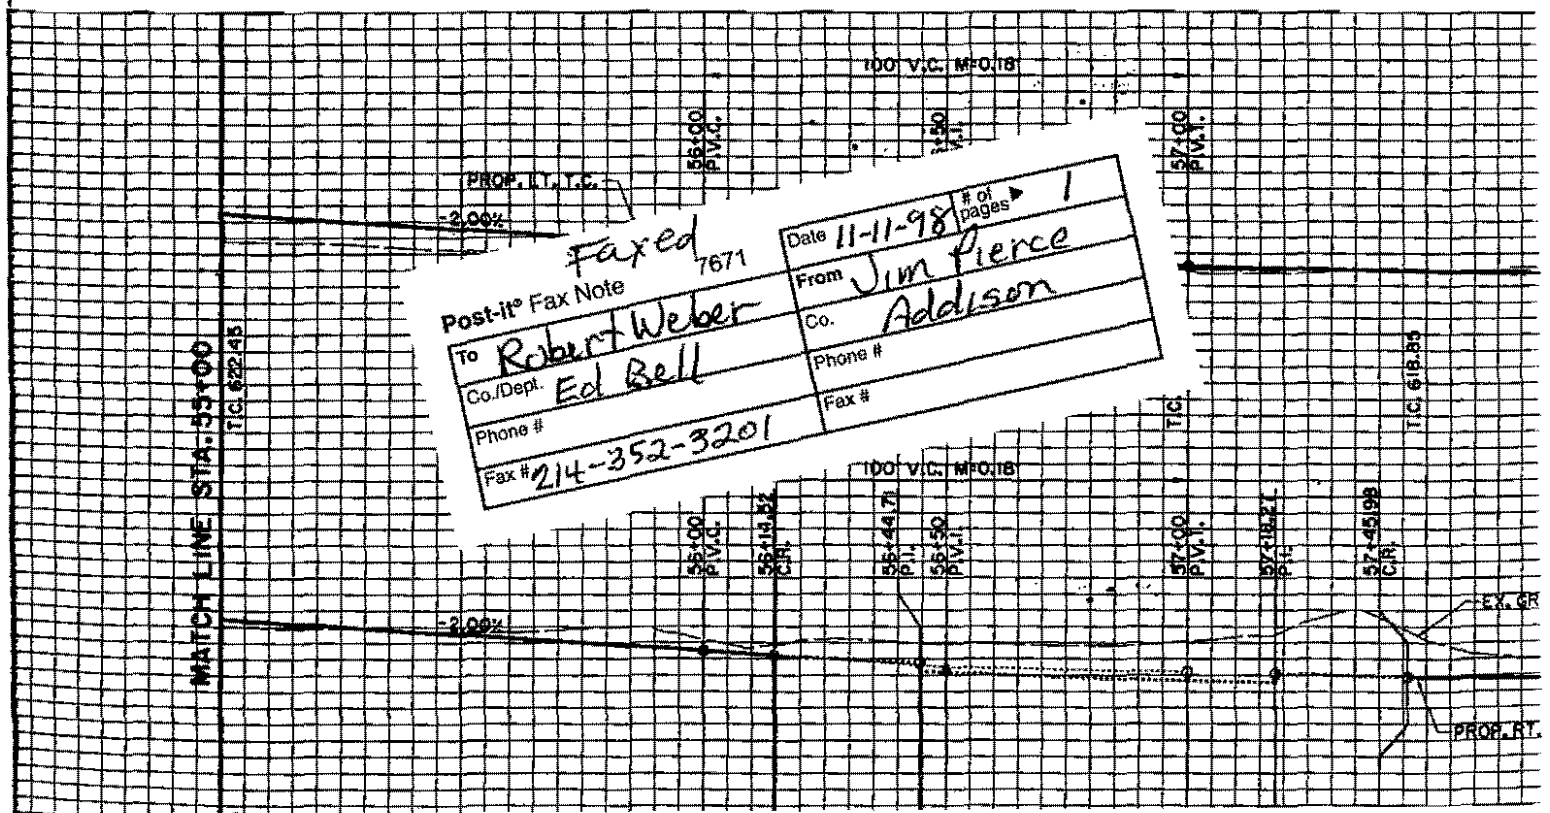 100' V.C. M=0.18
56+00
P.V.C.
+50
V.I.
57+00
P.V.T.
PROP. LT. T.C.
-2.00%
Faxed
Post-it® Fax Note 7671
Date 11-11-98 # of pages ▶ 1
To Robert Weber
From Jim Pierce
Co./Dept. Ed Bell
Co. Addison
Phone #
Phone #
Fax # 214-352-3201
Fax #
MATCH LINE STA. 55+00
T.C. 622.45
T.C.
T.C. 618.85
100' V.C. M=0.18
56+00
P.V.C.
56+14.52
C.R.
56+44.71
P.I.
56+50
P.V.I.
57+00
P.V.T.
57+18.27
P.I.
57+45.98
C.R.
-2.00%
EX. GR
PROP. RT.